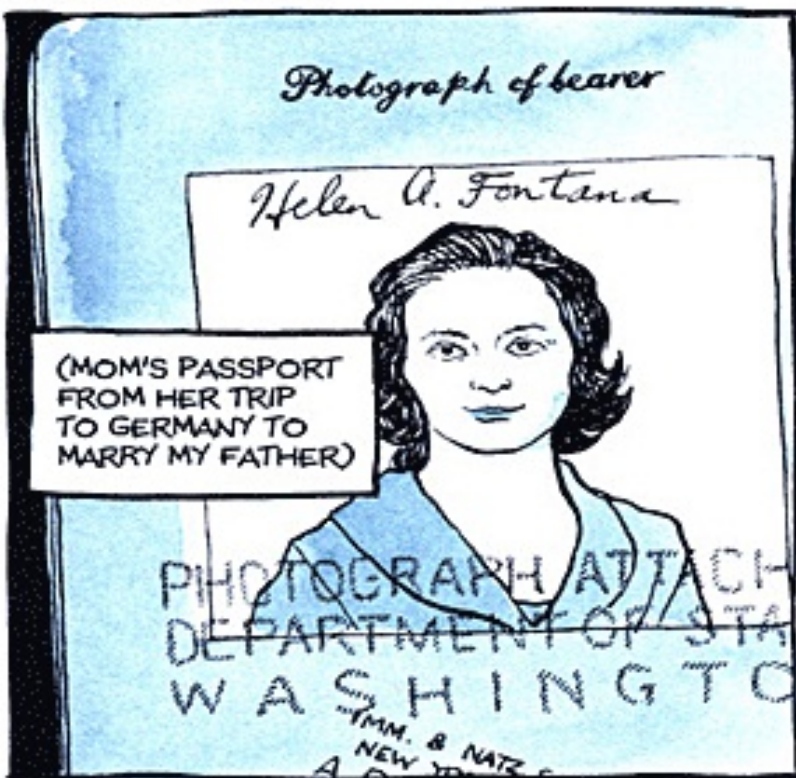 Photograph of bearer
Helen A. Fontana
(MOM'S PASSPORT
FROM HER TRIP
TO GERMANY TO
MARRY MY FATHER)
PHOTOGRAPH ATTACH
DEPARTMENT OF STA
WASHINGTO
IMM. & NATZ
NEW